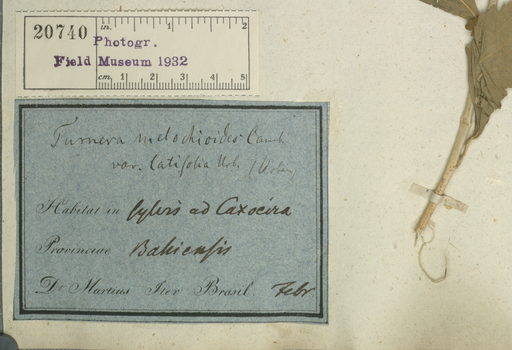 20740
in. 1 2
Photogr.
Field Museum 1932
cm. 1 2 3 4 5
Turnera melochioides Camb.
var. latifolia Urb. (Urban)
Habitat in sylvis ad Caxoeira
Provinciae Bahiensis
Dr Martius Iter Brasil. Febr.